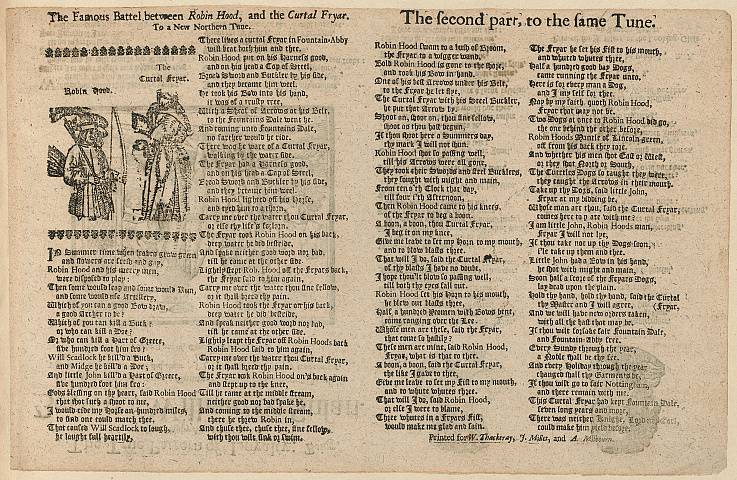 The Famous Battel between Robin Hood, and the Curtal Fryar.
To a New Northern Tune.
Robin Hood.
The
Curtal Fryar.
IN Summer time when leaves grow green
and flowers are fresh and gay,
Robin Hood and his merry men
were disposed to play:
Then some would leap and some would run,
and some would use Artillery,
Which of you can a good Bow draw,
a good Archer to be?
Which of you can kill a Buck?
or who can kill a Doe?
Or who can kill a Hart of Greece,
five hundred foot him fro?
Will Scadlock he kill'd a Buck,
and Midge he kill'd a Doe;
And little John kill'd a Hart of Greece,
five hundred foot him fro:
Gods blessing on thy heart, said Robin Hood
that shot such a shoot to me,
I would ride my Horse an hundred miles,
to find one could match thee.
That caused Will Scadlock to laugh,
he laught full heartily,
There lives a curtal Fryar in Fountain-Abby
will beat both him and thee.
Robin Hood put on his Harness good,
and on his head a Cap of Steel,
Broad Sword and Buckler by his side,
and they became him weel.
He took his Bow into his hand,
it was of a trusty tree,
With a Sheaf of Arrows at his Belt,
to the Fountains Dale went he.
And coming unto Fountains Dale,
no farther would he ride.
There was he ware of a Curtal Fryar,
walking by the water side.
The Fryar had a Harness good,
and on his head a Cap of Steel,
Broad Sword and Buckler by his side,
and they became him weel.
Robin Hood lighted off his Horse,
and tyed him to a thorn,
Carry me over the water thou Curtal Fryar,
or else thy life's forlorn.
The Fryar took Robin Hood on his back,
deep water he did bestride,
And spake neither good word nor bad,
till he came at the other side.
Lightly stept Rob. Hood off the Fryars back,
the Fryar said to him again,
Carry me over the water thou fine fellow,
or it shall breed thy pain.
Robin Hood took the Fryar on his back,
deep water he did bestride,
And spake neither good word nor bad,
till he came at the other side.
Lightly leapt the Fryar off Robin Hoods back
Robin Hood said to him again,
Carry me over the water thou Curtal Fryar,
or it shall breed thy pain.
The Fryar took Robin Hood on's back again
and stept up to the knee,
Till he came at the middle stream,
neither good nor bad spake he,
And coming to the middle stream,
there he threw Robin in,
And chuse thee, chuse thee, fine fellow,
with thou wilt sink or swim.
The second part, to the same Tune.
Robin Hood swam to a bush of Broom,
the Fryar to a wigger wand,
Bold Robin Hood is gone to the shore,
and took his Bow in hand.
One of his best Arrows under his Belt,
to the Fryar he let flye,
The Curtal Fryar with his Steel Buckler,
he put that Arrow by.
Shoot on, shoot on, thou fine fellow,
shoot as thou hast begun,
If thou shoot here a Summers day,
thy mark I will not shun.
Robin Hood shot so passing well,
till his Arrows were all gone,
They took their Swords and Steel Bucklers,
they fought with might and main,
From ten o'th Clock that day,
till four i'th Afternoon,
Then Robin Hood came to his knees,
of the Fryar to beg a boon.
A boon, a boon, thou Curtal Fryar,
I beg it on my knee,
Give me leave to set my Horn to my mouth,
and to blow blasts three.
That will I do, said the Curtal Fryar,
of thy blasts I have no doubt,
I hope thou'lt blow so passing well,
till both thy eyes fall out.
Robin Hood set his Horn to his mouth,
he blew out blasts three,
Half a hundred Yeomen with Bows bent,
came ranging over the Lee.
Whose men are these, said the Fryar,
that come so hastily?
These men are mine, said Robin Hood,
Fryar, what is that to thee.
A boon, a boon, said the Curtal Fryar,
the like I gave to thee,
Give me leave to set my Fist to my mouth,
and to whute whutes three.
That will I do, said Robin Hood,
or else I were to blame,
Three whutes in a Fryars Fist,
would make me glad and fain.
The Fryar he set his Fist to his mouth,
and whuted whutes three,
Half a hundred good bay Dogs,
came running the Fryar unto.
Here is for every man a Dog,
and I my self for thee.
Nay by my faith, quoth Robin Hood,
Fryar that may not be.
Two Dogs at once to Robin Hood did go,
the one behind the other before,
Robin Hoods Mantle of Lincoln-green,
off from his back they tore.
And whether his men shot East or West,
or they shot North or South,
The Curtles Dogs so taught they were,
they caught the Arrows in their mouth.
Take up thy Dogs, said Little John,
Fryar at my bidding be.
Whose man art thou, said the Curtal Fryar,
comes here to prate with me?
I am little John, Robin Hoods man,
Fryar I will not lye,
If thou take not up thy Dogs soon,
I'le take up them and thee.
Little John had a Bow in his hand,
he shot with might and main,
Soon half a score of the Fryars Dogs,
lay dead upon the plain.
Hold thy hand, hold thy hand, said the Curtal
thy Master and I will agree, (Fryar,
And we will have new orders taken,
with all the hast that may be.
If thou wilt forsake fair Fountain Dale,
and Fountain-Abby free.
Every Sunday through the year,
a Noble shall be thy fee.
And every Holiday through the year
changed shall thy Garments be,
If thou wilt go to fair Nottingham,
and there remain with me.
This Curtal Fryar had kept Fountain Dale,
seven long years and more,
There was neither Knight, Lord, nor Earl,
could make him yield before.
Printed for W. Thackeray, J. Millet, and A. Milbourn.